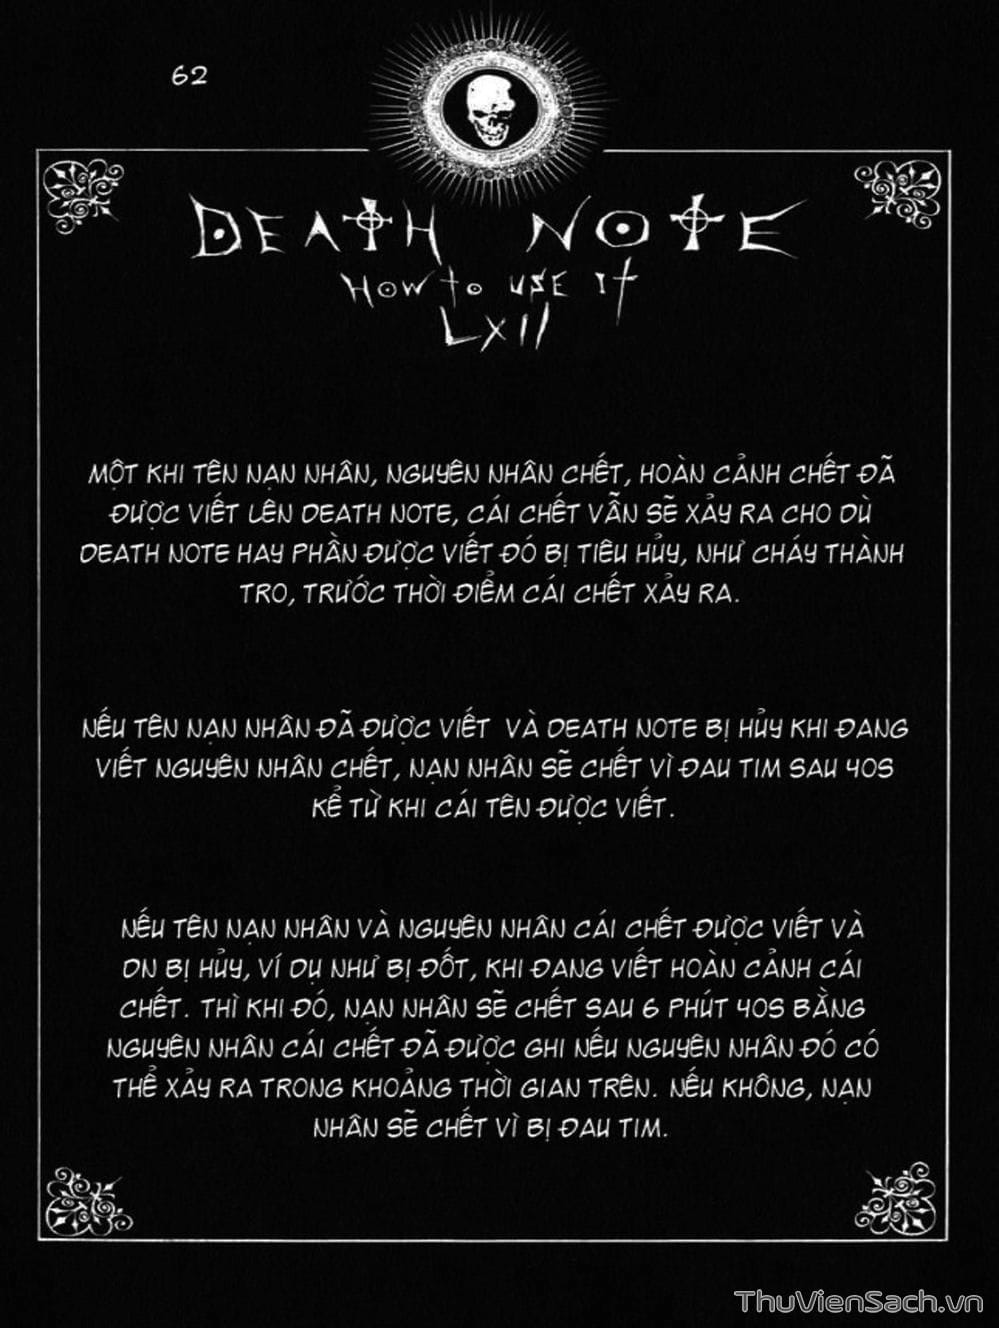 62
DEATH NOTE
HOW TO USE IT
LXII
MỘT KHI TÊN NẠN NHÂN, NGUYÊN NHÂN CHẾT, HOÀN CẢNH CHẾT ĐÃ
ĐƯỢC VIẾT LÊN DEATH NOTE, CÁI CHẾT VẪN SẼ XẢY RA CHO DÙ
DEATH NOTE HAY PHẦN ĐƯỢC VIẾT ĐÓ BỊ TIÊU HỦY, NHƯ CHÁY THÀNH
TRO, TRƯỚC THỜI ĐIỂM CÁI CHẾT XẢY RA.
NẾU TÊN NẠN NHÂN ĐÃ ĐƯỢC VIẾT VÀ DEATH NOTE BỊ HỦY KHI ĐANG
VIẾT NGUYÊN NHÂN CHẾT, NẠN NHÂN SẼ CHẾT VÌ ĐAU TIM SAU 40S
KỂ TỪ KHI CÁI TÊN ĐƯỢC VIẾT.
NẾU TÊN NẠN NHÂN VÀ NGUYÊN NHÂN CÁI CHẾT ĐƯỢC VIẾT VÀ
DN BỊ HỦY, VÍ DỤ NHƯ BỊ ĐỐT, KHI ĐANG VIẾT HOÀN CẢNH CÁI
CHẾT. THÌ KHI ĐÓ, NẠN NHÂN SẼ CHẾT SAU 6 PHÚT 40S BẰNG
NGUYÊN NHÂN CÁI CHẾT ĐÃ ĐƯỢC GHI NẾU NGUYÊN NHÂN ĐÓ CÓ
THỂ XẢY RA TRONG KHOẢNG THỜI GIAN TRÊN. NẾU KHÔNG, NẠN
NHÂN SẼ CHẾT VÌ BỊ ĐAU TIM.
ThuVienSach.vn